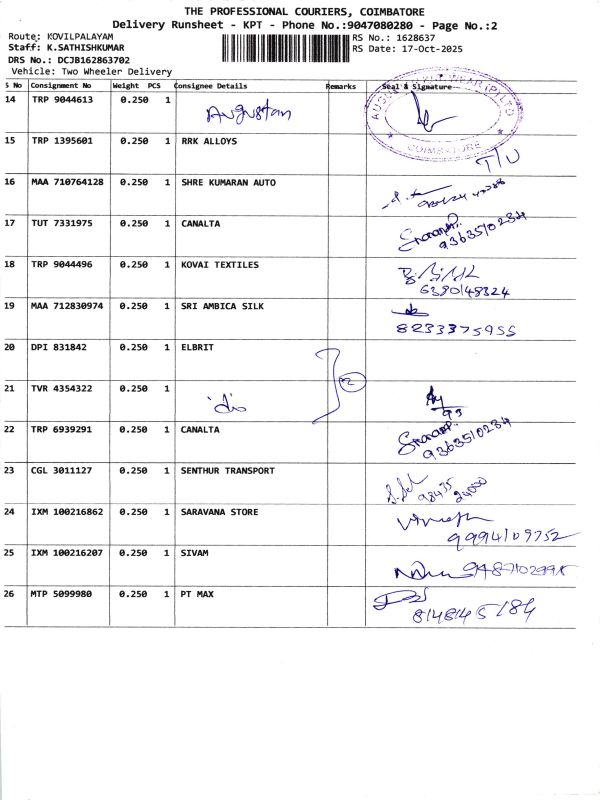 THE PROFESSIONAL COURIERS, COIMBATORE
Delivery Runsheet - KPT - Phone No.:9047080280 - Page No.:2
Route: KOVILPALAYAM RS No.: 1628637
Staff: K.SATHISHKUMAR RS Date: 17-Oct-2025
DRS No.: DCJB162863702
Vehicle: Two Wheeler Delivery
S No Consignment No Weight PCS Consignee Details Remarks Seal & Signature
14 TRP 9044613 0.250 1 Augustan
COIMBATORE
15 TRP 1395601 0.250 1 RRK ALLOYS
16 MAA 710764128 0.250 1 SHRE KUMARAN AUTO
17 TUT 7331975 0.250 1 CANALTA
9363510234
18 TRP 9044496 0.250 1 KOVAI TEXTILES
6380148324
19 MAA 712830974 0.250 1 SRI AMBICA SILK
8233375955
20 DPI 831842 0.250 1 ELBRIT
21 TVR 4354322 0.250 1
22 TRP 6939291 0.250 1 CANALTA
9363510234
23 CGL 3011127 0.250 1 SENTHUR TRANSPORT
98435 24000
24 IXM 100216862 0.250 1 SARAVANA STORE
9994109752
25 IXM 100216207 0.250 1 SIVAM
26 MTP 5099980 0.250 1 PT MAX
8148145184